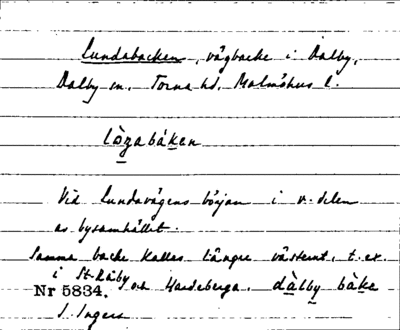 Lundabacken, vägbacke i Dalby,
Dalby sn, Torna hd, Malmöhus l.
Vid Lundavägens början i v. delen
av bysamhället.
Samma backe kallas längre västerut, t. ex.
i St. Råby och Hardeberga, dàlby bàke
Nr 5834.
I. Ingers